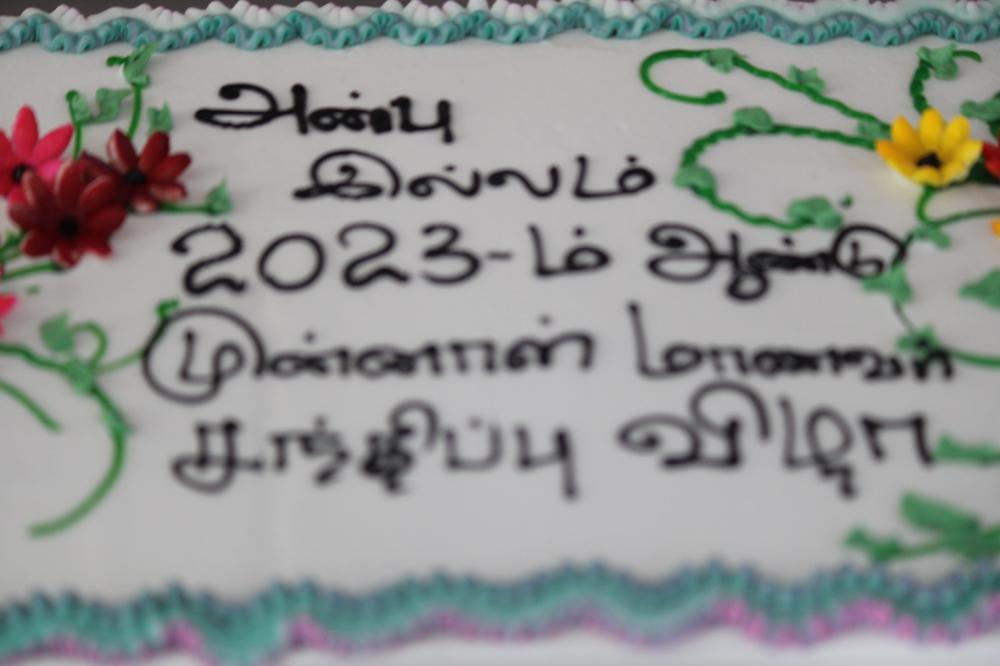 அன்பு
இல்லம்
2023-ம் ஆண்டு
முன்னாள் மாணவர்
சந்திப்பு விழா